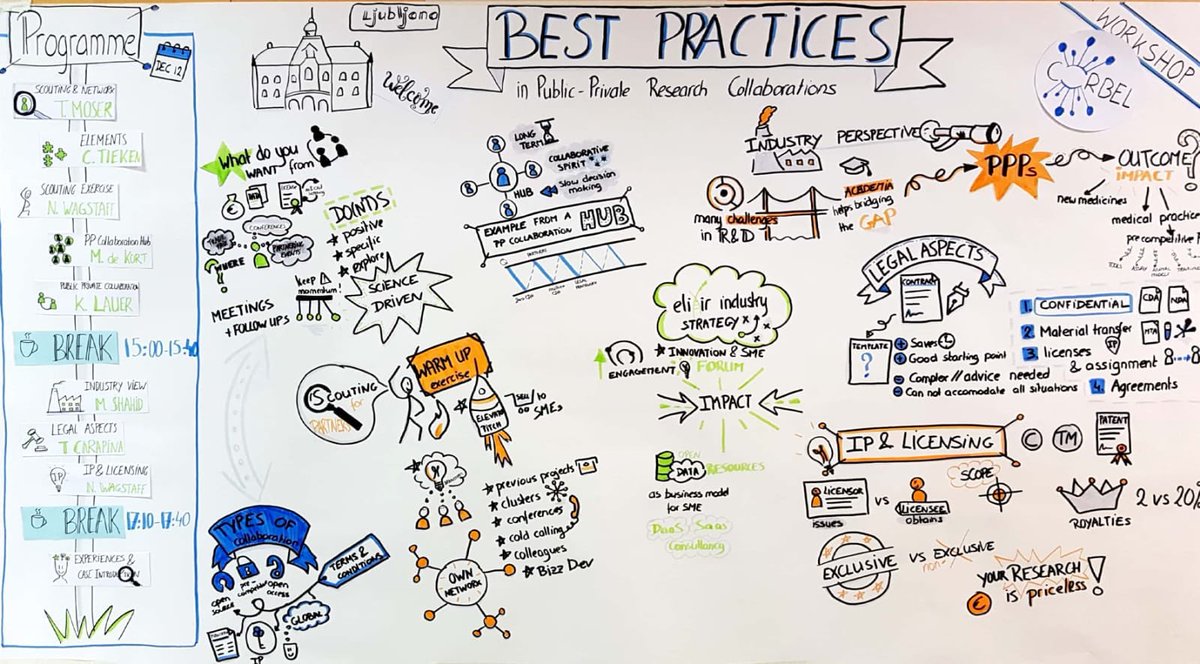 Programme
DEC 12
SCOUTING & NETWORK
T. MOSER
ELEMENTS
C. TIEKEN
SCOUTING EXERCISE
N. WAGSTAFF
PP Collaboration Hub
M. de KORT
PUBLIC PRIVATE COLLABORATION
K. LAUER
BREAK 15:00-15:40
INDUSTRY VIEW
M. SHAHID
LEGAL ASPECTS
T CARAPINA
IP
IP & LICENSING
N. WAGSTAFF
BREAK 17:10-17:40
EXPERIENCES &
CASE
Ljubljana
Welcome
BEST PRACTICES
in Public-Private Research Collaborations
WORKSHOP
CORBEL
What do you
WANT from
CONFERENCES
PARTNERING
EVENTS
WHERE
?
keep
momentum!
MEETINGS
+ FOLLOW UPS
POINTS
positive
specific
explore
SCIENCE
DRIVEN
LONG
TERM
COLLABORATIVE
SPIRIT
HUB
Slow decision
making
EXAMPLE FROM A
PP COLLABORATION
HUB
PARTNERS
INDUSTRY PERSPECTIVE
many challenges
in R&D
ACADEMIA
helps bridging
the GAP
PPPs
OUTCOME?
IMPACT
new medicines
medical practice
precompetitive
elixir industry
STRATEGY
INNOVATION & SME
FORUM
ENGAGEMENT
IMPACT
OPEN
DATA RESOURCES
as business model
for SME
DaaS SaaS
Consultancy
LEGAL ASPECTS
CONTRACT
TEMPLATE
?
+ Saves
+ Good starting point
- Complex // advice needed
- Can not accomodate all situations
1. CONFIDENTIAL
CDA
NDA
2 Material transfer
MTA
3 licenses
IP
& assignment
4. Agreements
IS
SCOUTING
for
PARTNERS
WARM UP
exercise
ELEVATOR
PITCH
SELL
SMEs
previous projects
clusters
conferences
cold calling
colleagues
Bizz Dev
OWN
NETWORK
TYPES OF
collaboration
open
source
pre-
open
access
TERMS &
CONDITIONS
GLOBAL
IP
IP & LICENSING
© TM
PATENT
SCOPE
LICENSOR
issues
VS
LICENSEE
obtains
ROYALTIES
2 vs 20%
EXCLUSIVE
VS EXCLUSIVE
non-
YOUR RESEARCH
is priceless!
€